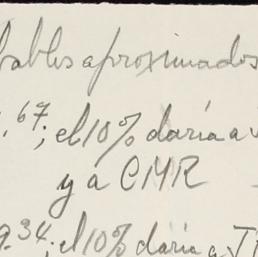 bables aproximados
,67; el 10% daría a
y a CMR
9.34; el 10% daría a J